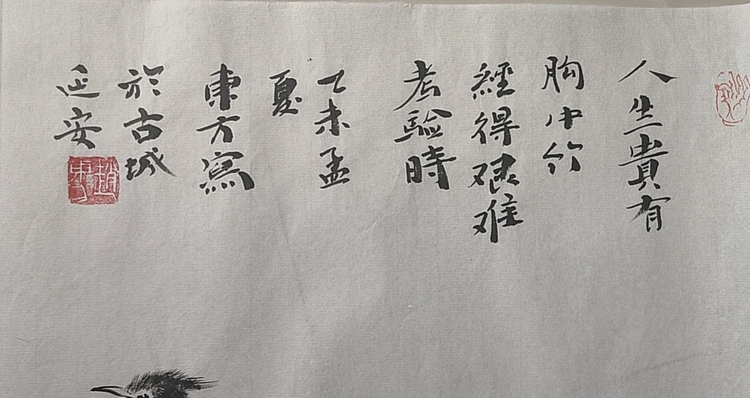 人生貴有
胸中竹
經得艰难
考驗時
乙未孟
夏
東方寫
於古城
延安